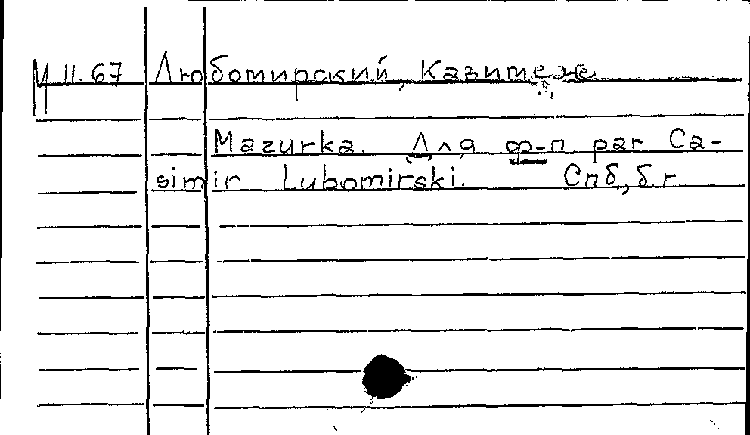 М II.67 Любомирский, Казимеж
Mazurka. Для ф-п par Ca-
simir Lubomirski. Спб, б.г.